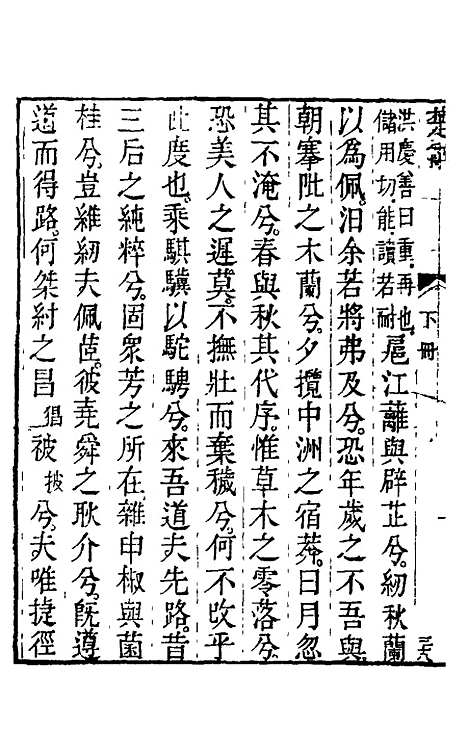 下冊
三六
洪慶善曰重再也
儲用切能讀若耐
扈江蘺與辟芷兮。紉秋蘭
以爲佩。汨余若將弗及兮。恐年歲之不吾與
朝搴阰之木蘭兮。夕攬中洲之宿莽。日月忽
其不淹兮。春與秋其代序。惟草木之零落兮。
恐美人之遲莫。不撫壯而棄穢兮。何不改乎
此度也。乘騏驥以駝騁兮。來吾道夫先路。昔
三后之純粹兮。固衆芳之所在。雜申椒與菌
桂兮。豈維紉夫佩茝。彼堯舜之耿介兮。旣遵
道而得路。何桀紂之昌猖被披兮。夫唯捷徑